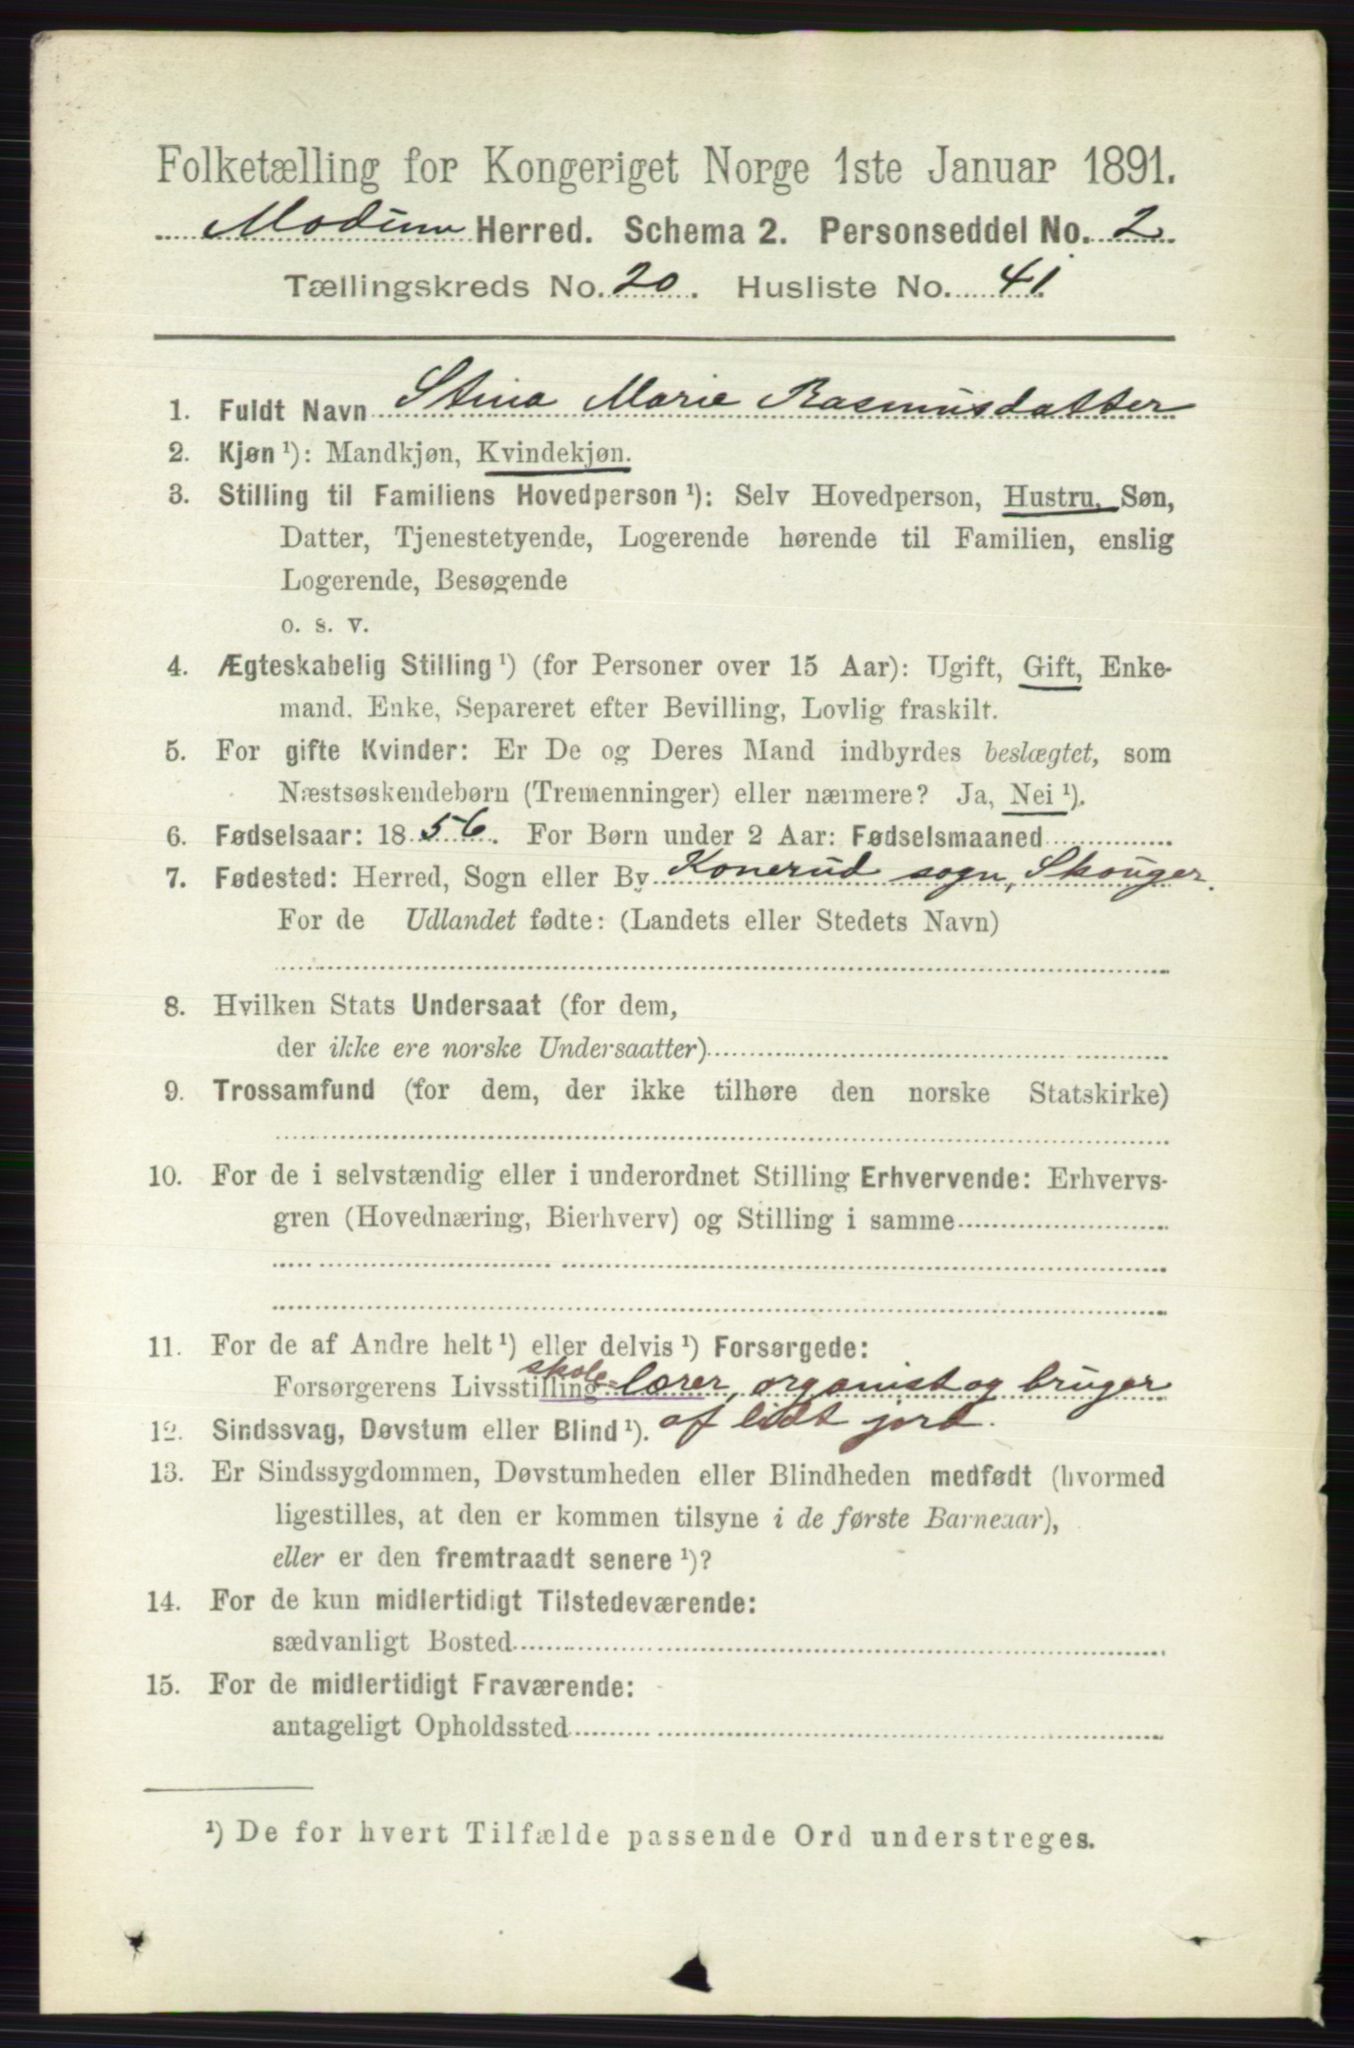 Folketælling for Kongeriget Norge 1ste Januar 1891.
Modum Herred. Schema 2. Personseddel No. 2.
Tællingskreds No. 20. Husliste No. 41.
1. Fuldt Navn Stina Marie Rasmusdatter
2. Kjøn ¹): Mandkjøn, Kvindekjøn.
3. Stilling til Familiens Hovedperson ¹): Selv Hovedperson, Hustru, Søn,
Datter, Tjenestetyende, Logerende hørende til Familien, enslig
Logerende, Besøgende
o. s. v.
4. Ægteskabelig Stilling ¹) (for Personer over 15 Aar): Ugift, Gift, Enke-
mand, Enke, Separeret efter Bevilling, Lovlig fraskilt.
5. For gifte Kvinder: Er De og Deres Mand indbyrdes beslægtet, som
Næstsøskendebørn (Tremenninger) eller nærmere? Ja, Nei ¹).
6. Fødselsaar: 1856. For Børn under 2 Aar: Fødselsmaaned
7. Fødested: Herred, Sogn eller By Konerud sogn, Skouger.
For de Udlandet fødte: (Landets eller Stedets Navn)
8. Hvilken Stats Undersaat (for dem,
der ikke ere norske Undersaatter)
9. Trossamfund (for dem, der ikke tilhøre den norske Statskirke)
10. For de i selvstændig eller i underordnet Stilling Erhvervende: Erhvervs-
gren (Hovednæring, Bierhverv) og Stilling i samme
11. For de af Andre helt ¹) eller delvis ¹) Forsørgede:
Forsørgerens Livsstilling skole=lærer, organist og bruger
12. Sindssvag, Døvstum eller Blind ¹). af lidt jord.
13. Er Sindssygdommen, Døvstumheden eller Blindheden medfødt (hvormed
ligestilles, at den er kommen tilsyne i de første Barneaar),
eller er den fremtraadt senere ¹)?
14. For de kun midlertidigt Tilstedeværende:
sædvanligt Bosted
15. For de midlertidigt Fraværende:
antageligt Opholdssted
¹) De for hvert Tilfælde passende Ord understreges.